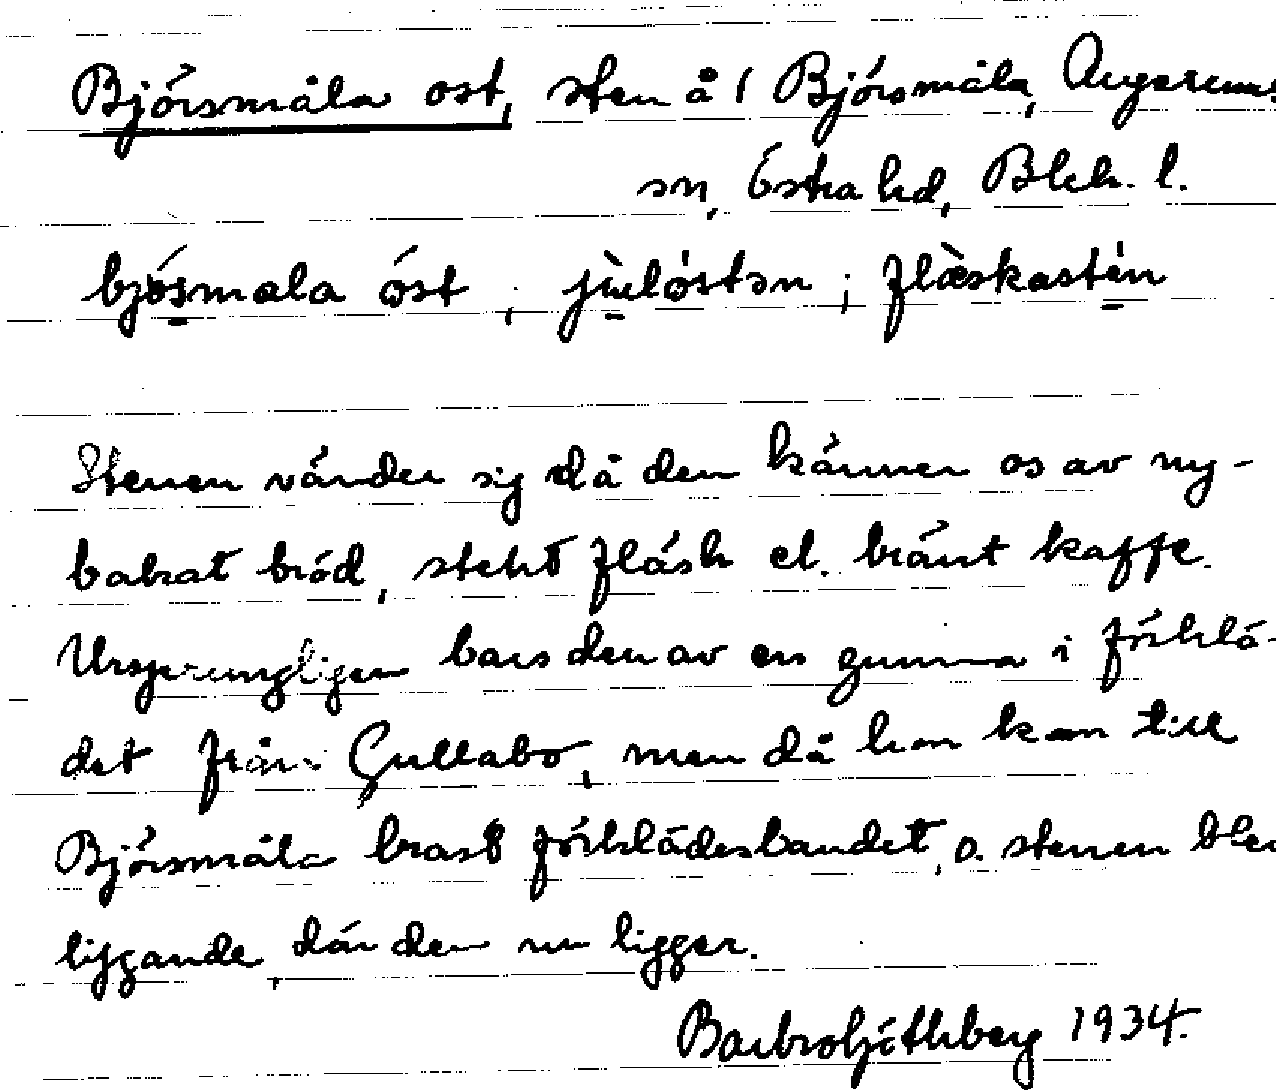 Björsmåla ost, sten å 1 Björsmåla, Augerums
sn, Östra hd, Blek. l.
bjósmala óst ; jùlóstən ; flæ̀skastén
Stenen vänder sig då den känner os av ny-
bakat bröd, stekt fläsk el. bränt kaffe.
Ursprungligen bars den av en gumma i förklä-
det från Gullabo, men då hon kom till
Björsmåla brast förklädesbandet, o. stenen blev
liggande, där den nu ligger.
1934.